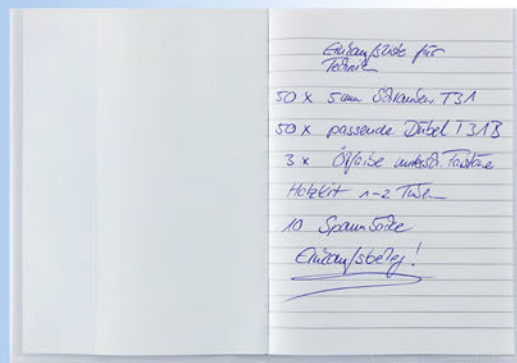 Einkaufsliste für
Technik
50 x 5mm Schrauben T31
50 x passende Dübel T31B
3 x Ölfarbe untersch. Farbtöne
Holzkit 1-2 Tuben
10
Einkaufsbeleg!